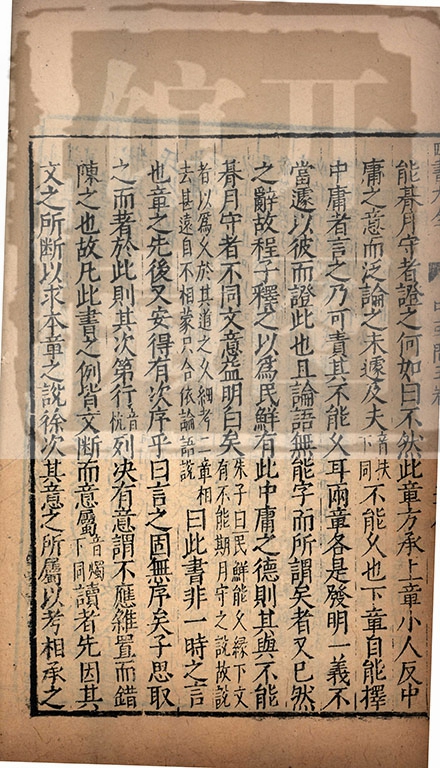 能朞月守者證之何如曰不然此章方承上章小人反中
庸之意而泛論之未遽及夫音扶下同不能久也下章自能擇
中庸者言之乃可責其不能久耳兩章各是發明一義不
當遽以彼而證此也且論語無能字而所謂矣者又已然
之辭故程子釋之以爲民鮮有此中庸之德則其與不能
朞月守者不同文意益明白矣朱子曰民鮮能久緣下文有不能期月守之說故說
者以爲久於其道之久細考二章相去甚遠自不相蒙只合依論語說曰此書非一時之言
也章之先後又安得有次序乎曰言之固無序矣子思取
之而著於此則其次第行音杭列决有意謂不應雜置而錯
陳之也故凡此書之例皆文斷而意屬音燭下同讀者先因其
文之所斷以求本章之說徐次其意之所屬以考相承之